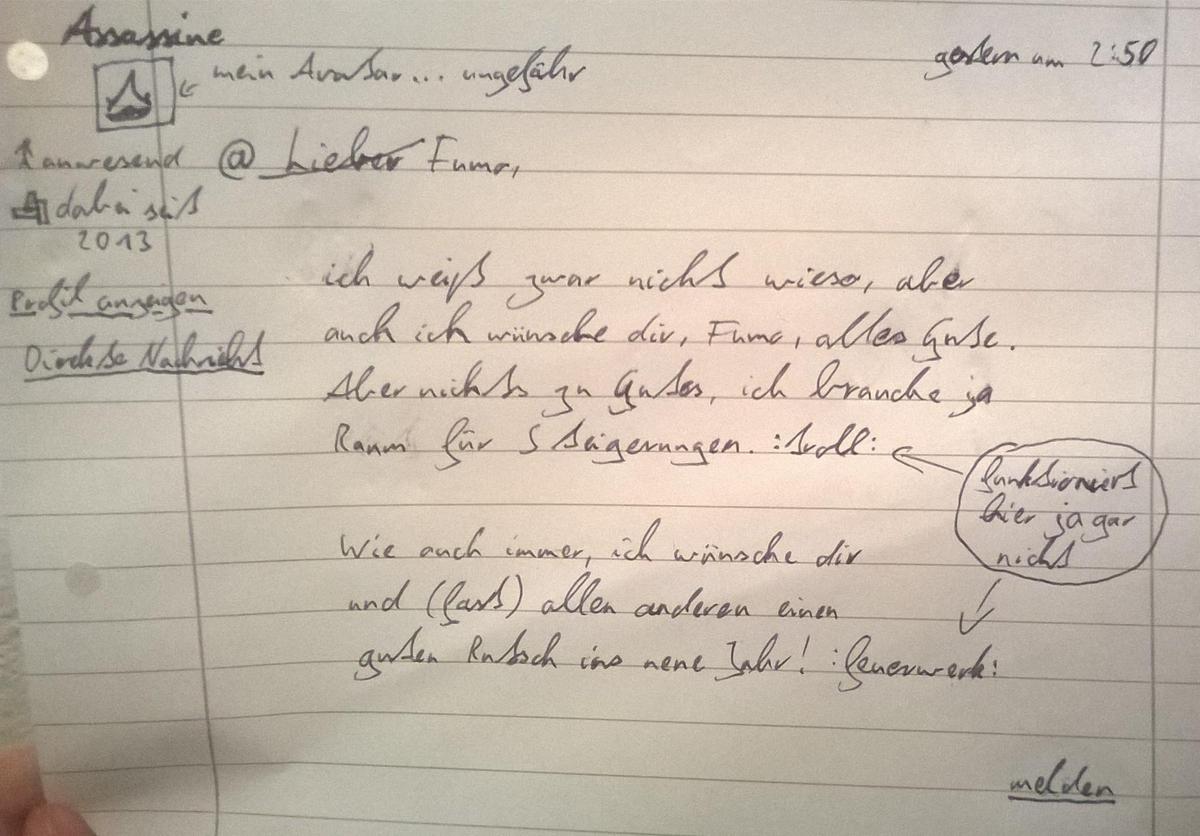 Assassine
mein Avatar... ungefähr
gestern um 2:50
anwesend
@ Lieber Fumo,
dabei seit
2013
Profil anzeigen
Direkte Nachricht
ich weiß zwar nicht wieso, aber
auch ich wünsche dir, Fumo, alles Gute.
Aber nichts zu Gutes, ich brauche ja
Raum für Steigerungen. :troll:
funktioniert
hier ja gar
nicht
Wie auch immer, ich wünsche dir
und (fast) allen anderen einen
guten Rutsch ins neue Jahr! :feuerwerk:
melden